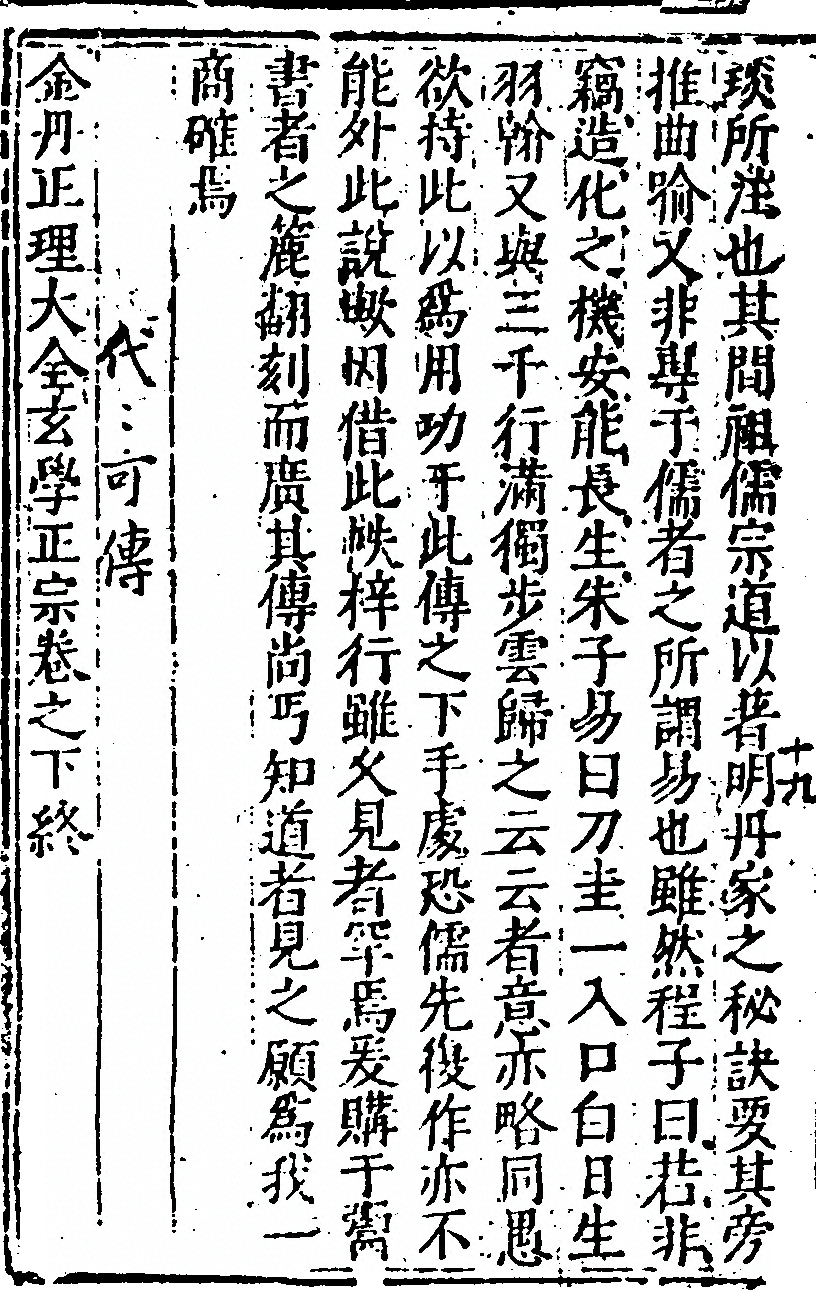 琰所注也其間祖儒宗道以著明丹家之秘訣要其旁
推曲喻又非專于儒者之所謂易也雖然程子曰若非
竊造化之機安能長生朱子易曰刀圭一入口白日生
羽翰又與三千行滿獨步雲歸之云云者意亦略同愚
欲持此以爲用功乎此傳之下手處恐儒先復作亦不
能外此說歟因借此帙梓行雖父見者罕焉爰購于鬻
書者之簏翻刻而廣其傳尚丐知道者見之願爲我一
商確焉
代〻可傳
金丹正理大全玄學正宗卷之下終
十九